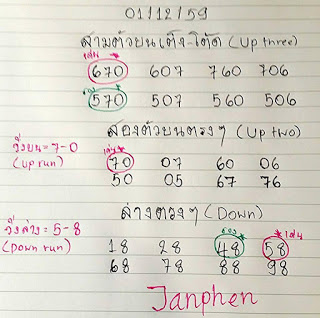 01/12/59
สามตัวบนเต็ง-โต๊ด (Up three)
เด่น
670 607 760 706
รอง
570 507 560 506
สองตัวบนตรงๆ (Up two)
วิ่งบน=7-0
(up run)
เด่น
70 07 60 06
50 05 67 76
ล่างตรงๆ (Down)
วิ่งล่าง=5-8
(Down run)
รอง เด่น
18 28 48 58
68 78 88 98
Janphen